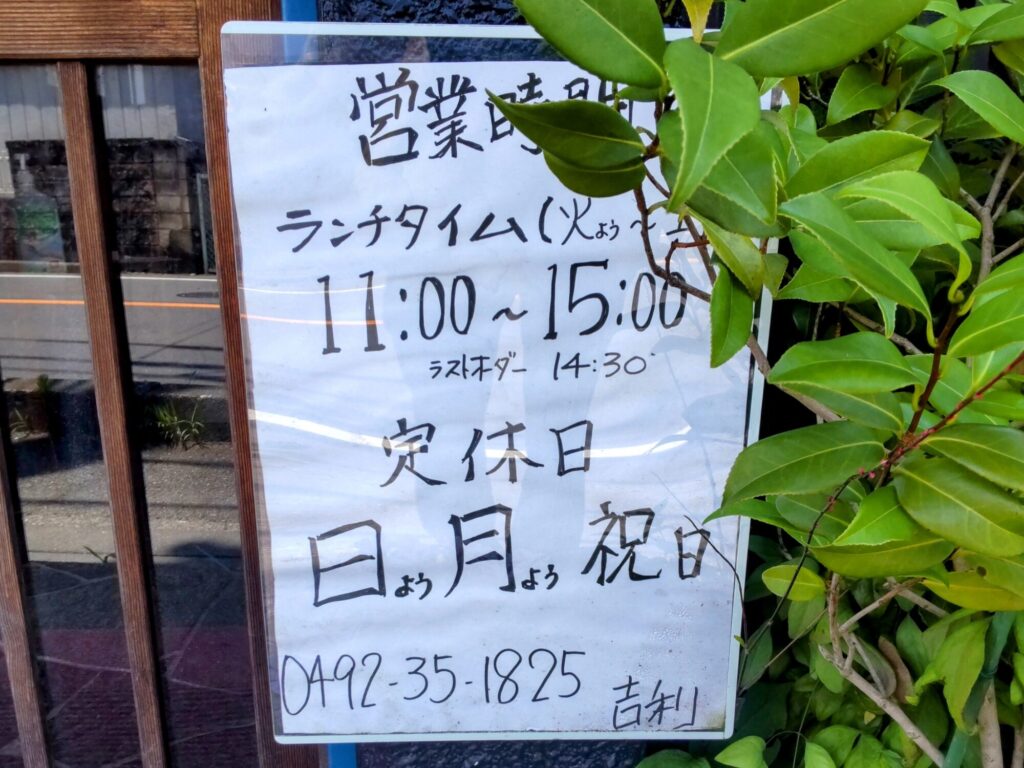 営業時間
ランチタイム(火よう〜土
11:00〜15:00
ラストオーダー 14:30
定休日
日よう月よう祝日
0492-35-1825 吉利